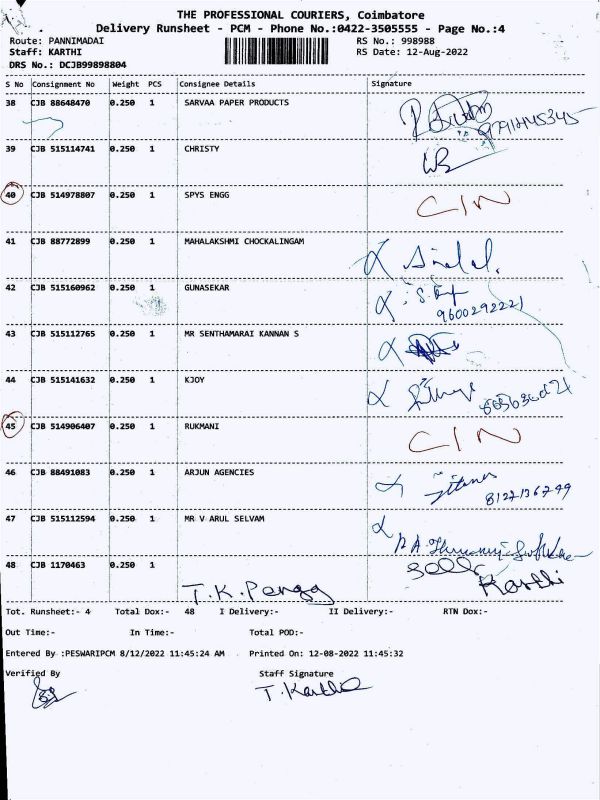 THE PROFESSIONAL COURIERS, Coimbatore
Delivery Runsheet - PCM - Phone No.:0422-3505555 - Page No.:4
Route: PANNIMADAI RS No.: 998988
Staff: KARTHI RS Date: 12-Aug-2022
DRS No.: DCJB99898804
S No Consignment No Weight PCS Consignee Details Signature
38 CJB 88648470 0.250 1 SARVAA PAPER PRODUCTS
39 CJB 515114741 0.250 1 CHRISTY
40 CJB 514978807 0.250 1 SPYS ENGG CIN
41 CJB 88772899 0.250 1 MAHALAKSHMI CHOCKALINGAM
42 CJB 515160962 0.250 1 GUNASEKAR
9600292221
43 CJB 515112765 0.250 1 MR SENTHAMARAI KANNAN S
44 CJB 515141632 0.250 1 KJOY
45 CJB 514906407 0.250 1 RUKMANI CIN
46 CJB 88491083 0.250 1 ARJUN AGENCIES
8122136799
47 CJB 515112594 0.250 1 MR V ARUL SELVAM
48 CJB 1170463 0.250 1 Karthi
Tot. Runsheet:- 4 Total Dox:- 48 I Delivery:- II Delivery:- RTN Dox:-
Out Time:- In Time:- Total POD:-
Entered By :PESWARIPCM 8/12/2022 11:45:24 AM Printed On: 12-08-2022 11:45:32
Verified By Staff Signature